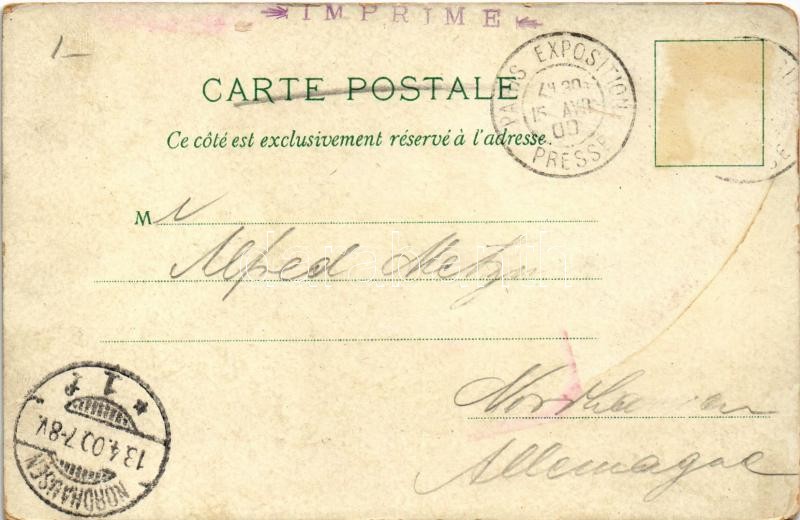 IMPRIMÉ
1-
PARIS EXPOSITION
15 AVR
00
PRESSE
CARTE POSTALE
Ce côté est exclusivement réservé à l'adresse.
M
Alfred
Nordhausen
Allemagne
NORDHAUSEN
13.4.00.7-8V.
* 1 f